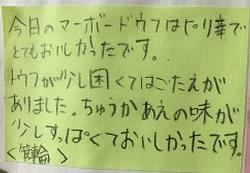 今日のマーボードウフはピリ辛で
とてもおいしかったです。
トウフが少し困くてはごたえが
ありました。ちゅうかあえの味が
少しすっぱくておいしかったです。
〈箕輪〉